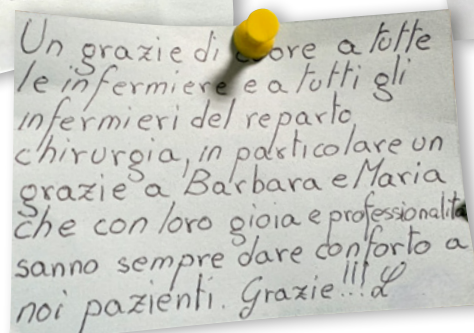 Un grazie di cuore a tutte
le infermiere e a tutti gli
infermieri del reparto
chirurgia, in particolare un
grazie a Barbara e Maria
che con loro gioia e professionalità
sanno sempre dare conforto a
noi pazienti. Grazie!!!